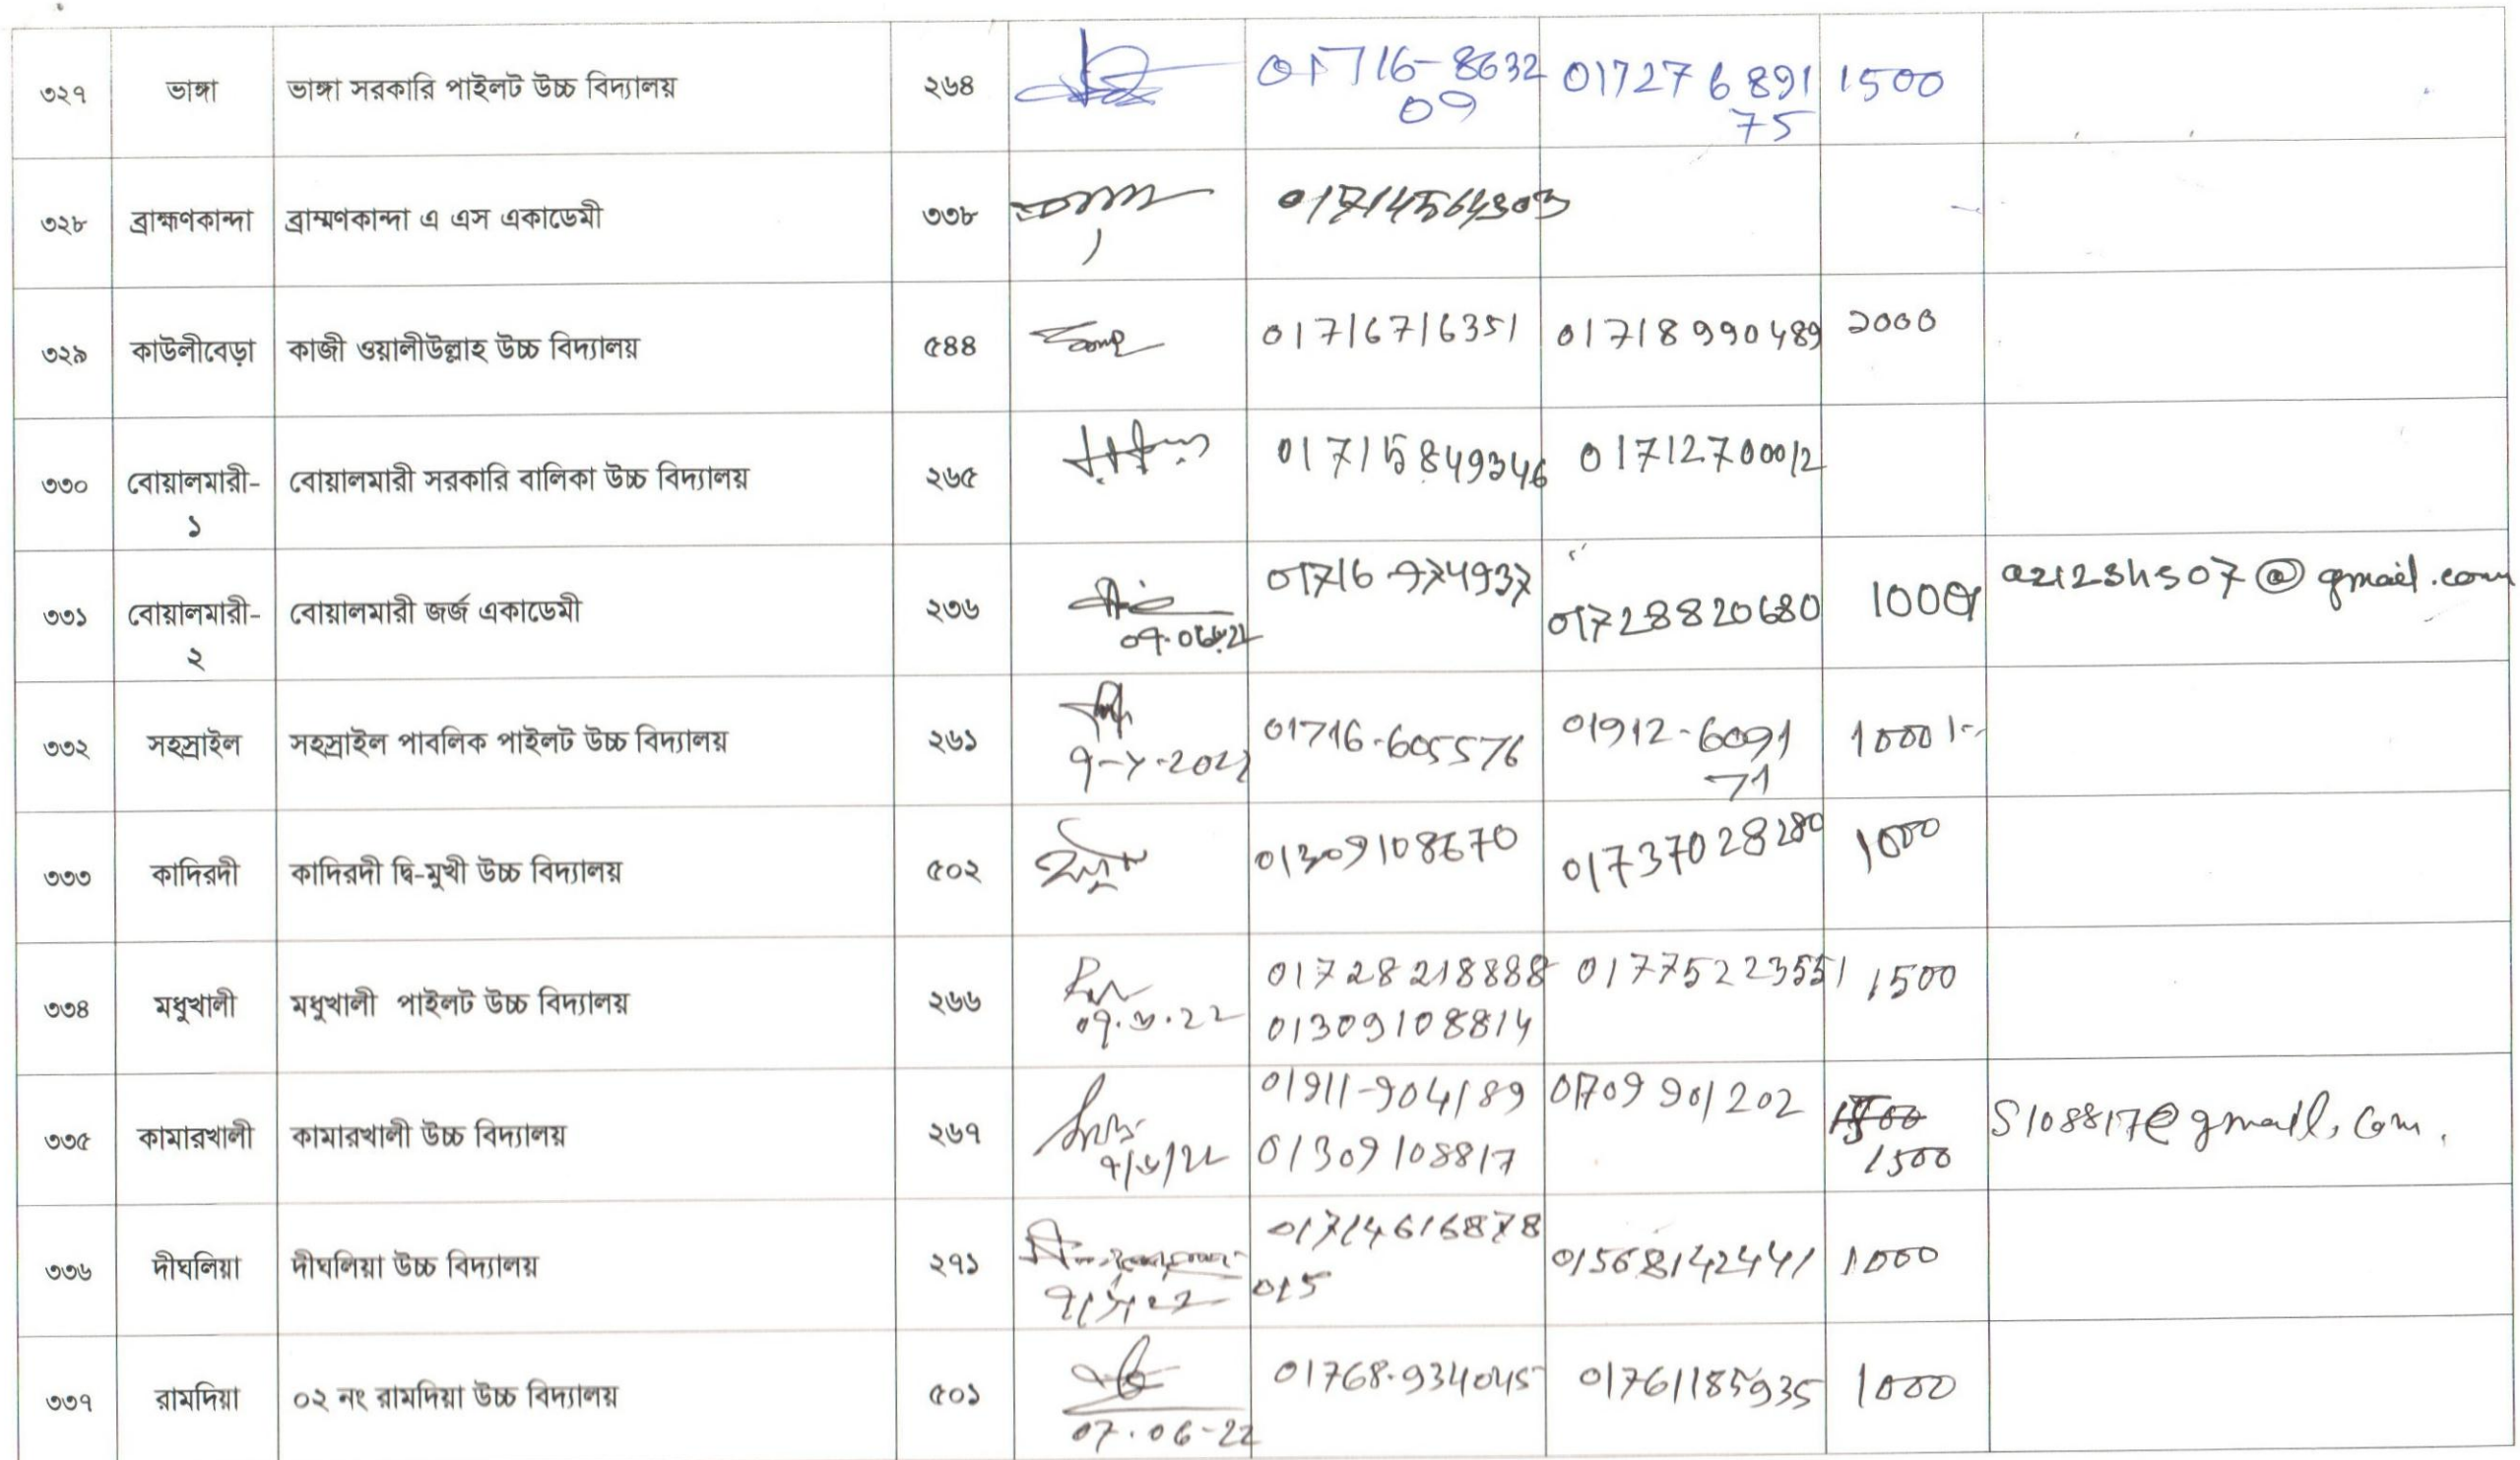 ৩২৭ ভাঙ্গা ভাঙ্গা সরকারি পাইলট উচ্চ বিদ্যালয় ২৬৪ 01716-8632 017276891 1500
09 75
৩২৮ ব্রাহ্মণকান্দা ব্রাম্মণকান্দা এ এস একাডেমী ৩৩৮ 01714564303
৩২৯ কাউলীবেড়া কাজী ওয়ালীউল্লাহ উচ্চ বিদ্যালয় ৫৪৪ 01716716351 01718990489 2000
৩৩০ বোয়ালমারী- বোয়ালমারী সরকারি বালিকা উচ্চ বিদ্যালয় ২৬৫ 01715849346 01712700012
১
৩৩১ বোয়ালমারী- বোয়ালমারী জর্জ একাডেমী ২৩৬ 01716974937 01728820680 1000
২
৩৩২ সহস্রাইল সহস্রাইল পাবলিক পাইলট উচ্চ বিদ্যালয় ২৬১ 01716-605576 01912-6091 1000/-
71
৩৩৩ কাদিরদী কাদিরদী দ্বি-মুখী উচ্চ বিদ্যালয় ৫০২ 01309108670 01737028280 1000
৩৩৪ মধুখালী মধুখালী পাইলট উচ্চ বিদ্যালয় ২৬৬ 01728218888 01775223551 1500
০৭.৬.22 01309108814
৩৩৫ কামারখালী কামারখালী উচ্চ বিদ্যালয় ২৬৭ 01911-904189 01709901202 S108817@gmail.com.
৭/৬/22 01309108817 1500
৩৩৬ দীঘলিয়া দীঘলিয়া উচ্চ বিদ্যালয় ২৭১ 01714616878 01568142441 1000
015
৩৩৭ রামদিয়া ০২ নং রামদিয়া উচ্চ বিদ্যালয় ৫০১ 01768-934045 01761185935 1000
07.06-22